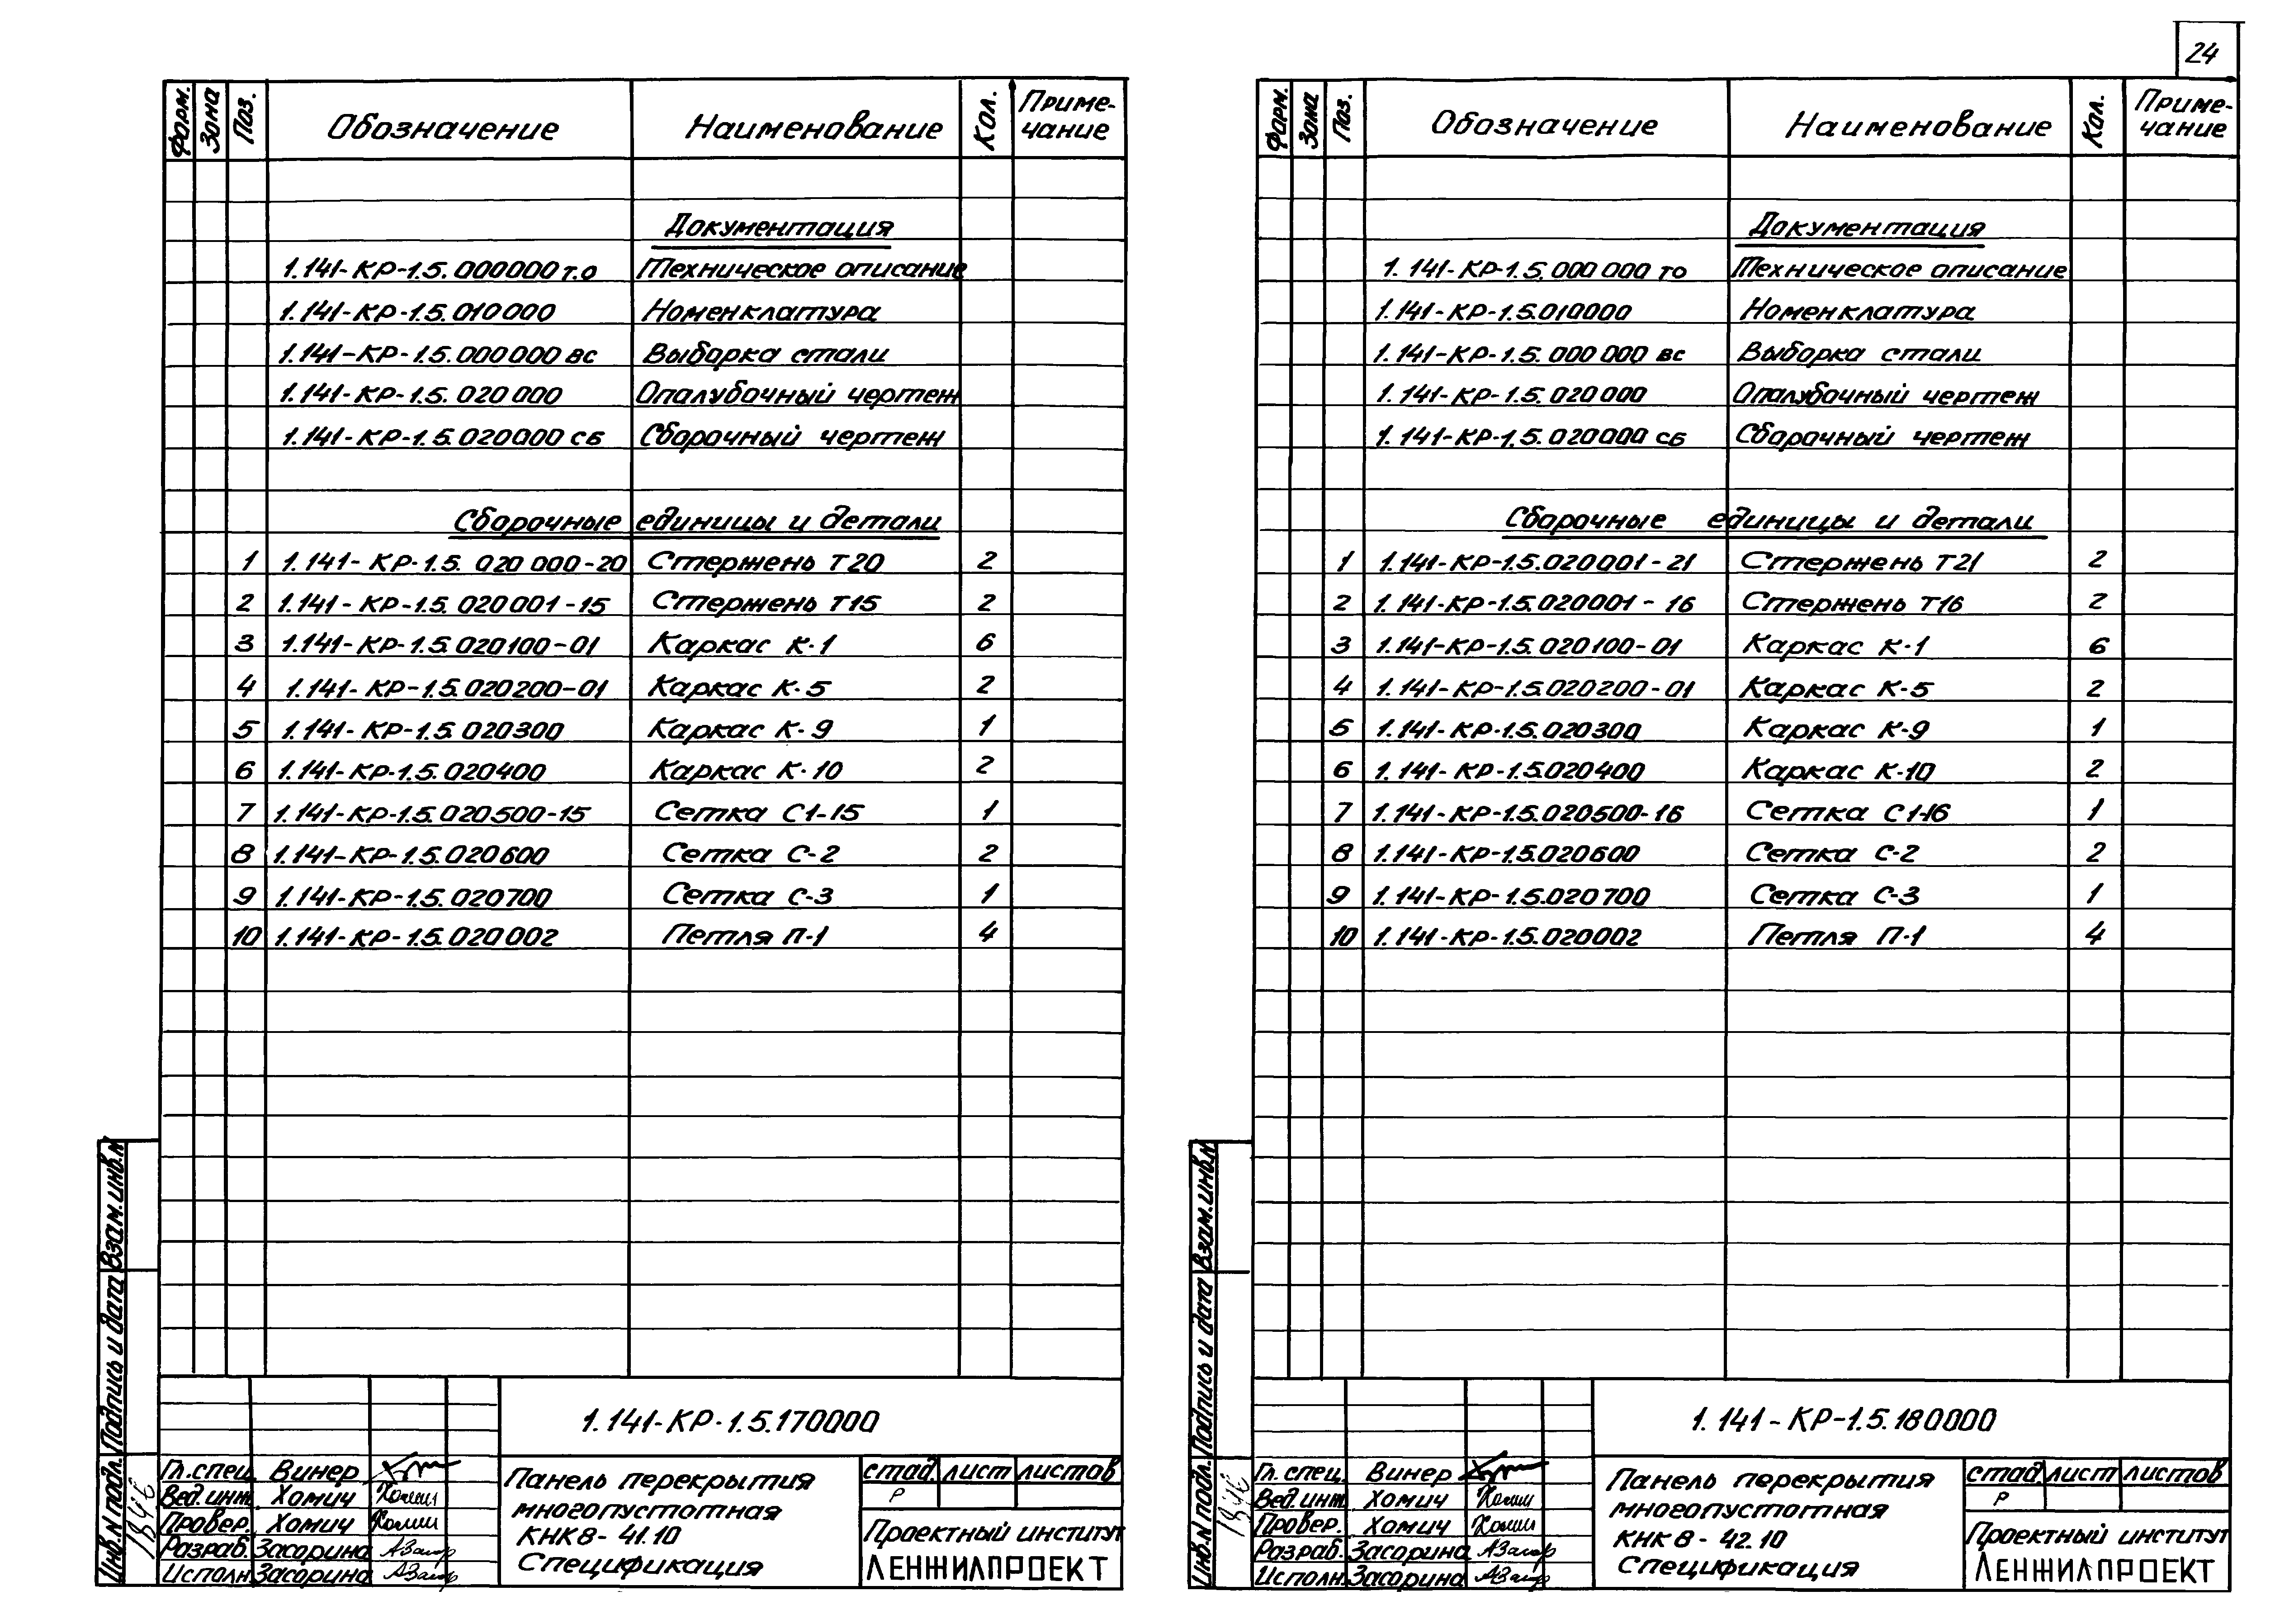 24
Форм. Зона Поз. Обозначение Наименование Кол. Приме-
чание
Документация
1.141-КР-1.5.000000 т.о Техническое описание
1.141-КР-1.5.010000 Номенклатура
1.141-КР-1.5.000000 вс Выборка стали
1.141-КР-1.5.020000 Опалубочный чертеж
1.141-КР-1.5.020000 сб Сборочный чертеж
Сборочные единицы и детали
1 1.141-КР-1.5.020000-20 Стержень Т20 2
2 1.141-КР-1.5.020001-15 Стержень Т15 2
3 1.141-КР-1.5.020100-01 Каркас К-1 6
4 1.141-КР-1.5.020200-01 Каркас К-5 2
5 1.141-КР-1.5.020300 Каркас К-9 1
6 1.141-КР-1.5.020400 Каркас К-10 2
7 1.141-КР-1.5.020500-15 Сетка С1-15 1
8 1.141-КР-1.5.020600 Сетка С-2 2
9 1.141-КР-1.5.020700 Сетка С-3 1
10 1.141-КР-1.5.020002 Петля П-1 4
Взам.инв.N
Подпись и дата
Инв.N подл.
1.141-КР-1.5.170000
Гл.спец. Винер
Вед.инж. Хомич
Провер. Хомич
Разраб. Засорина
Исполн. Засорина
Панель перекрытия
многопустотная
КНК8-41.10
Спецификация
стад. лист листов
Р
Проектный институт
ЛЕНЖИЛПРОЕКТ
Форм. Зона Поз. Обозначение Наименование Кол. Приме-
чание
Документация
1.141-КР-1.5.000000 то Техническое описание
1.141-КР-1.5.010000 Номенклатура
1.141-КР-1.5.000000 вс Выборка стали
1.141-КР-1.5.020000 Опалубочный чертеж
1.141-КР-1.5.020000 сб Сборочный чертеж
Сборочные единицы и детали
1 1.141-КР-1.5.020001-21 Стержень Т21 2
2 1.141-КР-1.5.020001-16 Стержень Т16 2
3 1.141-КР-1.5.020100-01 Каркас К-1 6
4 1.141-КР-1.5.020200-01 Каркас К-5 2
5 1.141-КР-1.5.020300 Каркас К-9 1
6 1.141-КР-1.5.020400 Каркас К-10 2
7 1.141-КР-1.5.020500-16 Сетка С1-16 1
8 1.141-КР-1.5.020600 Сетка С-2 2
9 1.141-КР-1.5.020700 Сетка С-3 1
10 1.141-КР-1.5.020002 Петля П-1 4
Взам.инв.N
Подпись и дата
Инв.N подл.
1.141-КР-1.5.180000
Гл.спец. Винер
Вед.инж. Хомич
Провер. Хомич
Разраб. Засорина
Исполн. Засорина
Панель перекрытия
многопустотная
КНК8-42.10
Спецификация
стад. лист листов
Р
Проектный институт
ЛЕНЖИЛПРОЕКТ